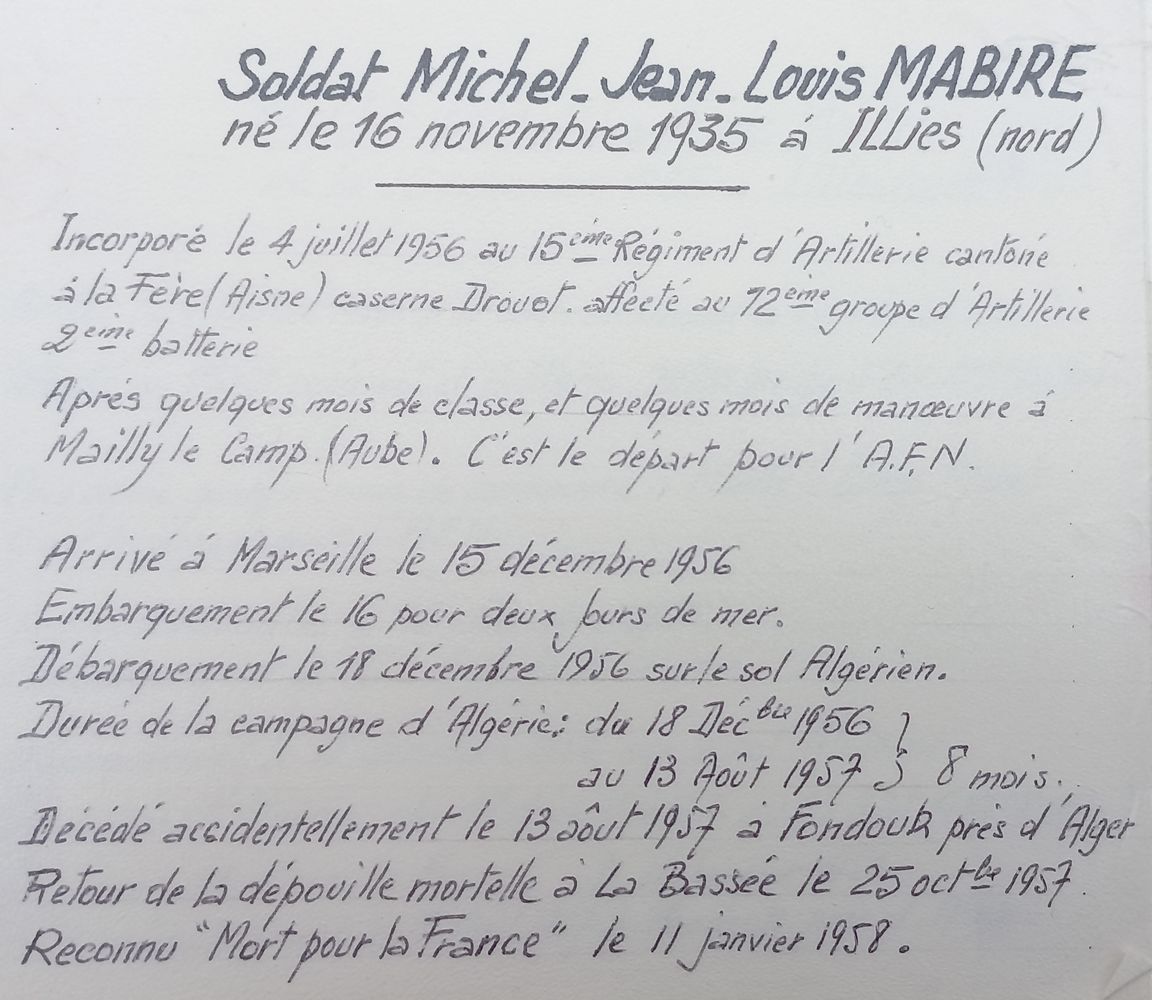 Soldat Michel-Jean-Louis MABIRE
né le 16 novembre 1935 á ILLies (nord)
Incorporé le 4 juillet 1956 au 15ème Régiment d'Artillerie cantoné
á la Fère (Aisne) caserne Drouot. affecté au 72ème groupe d'Artillerie
2ème batterie
Aprés quelques mois de classe, et quelques mois de manœuvre á
Mailly le Camp. (Aube). C'est le départ pour l'A.F.N.
Arrivé á Marseille le 15 décembre 1956
Embarquement le 16 pour deux jours de mer.
Débarquement le 18 décembre 1956 sur le sol Algérien.
Durée de la campagne d'Algérie: du 18 Décbre 1956 }
au 13 Août 1957 } 8 mois.
Décédé accidentellement le 13 août 1957 à Fondouk prés d'Alger
Retour de la dépouille mortelle à La Bassée le 25 octbre 1957.
Reconnu "Mort pour la France" le 11 janvier 1958.